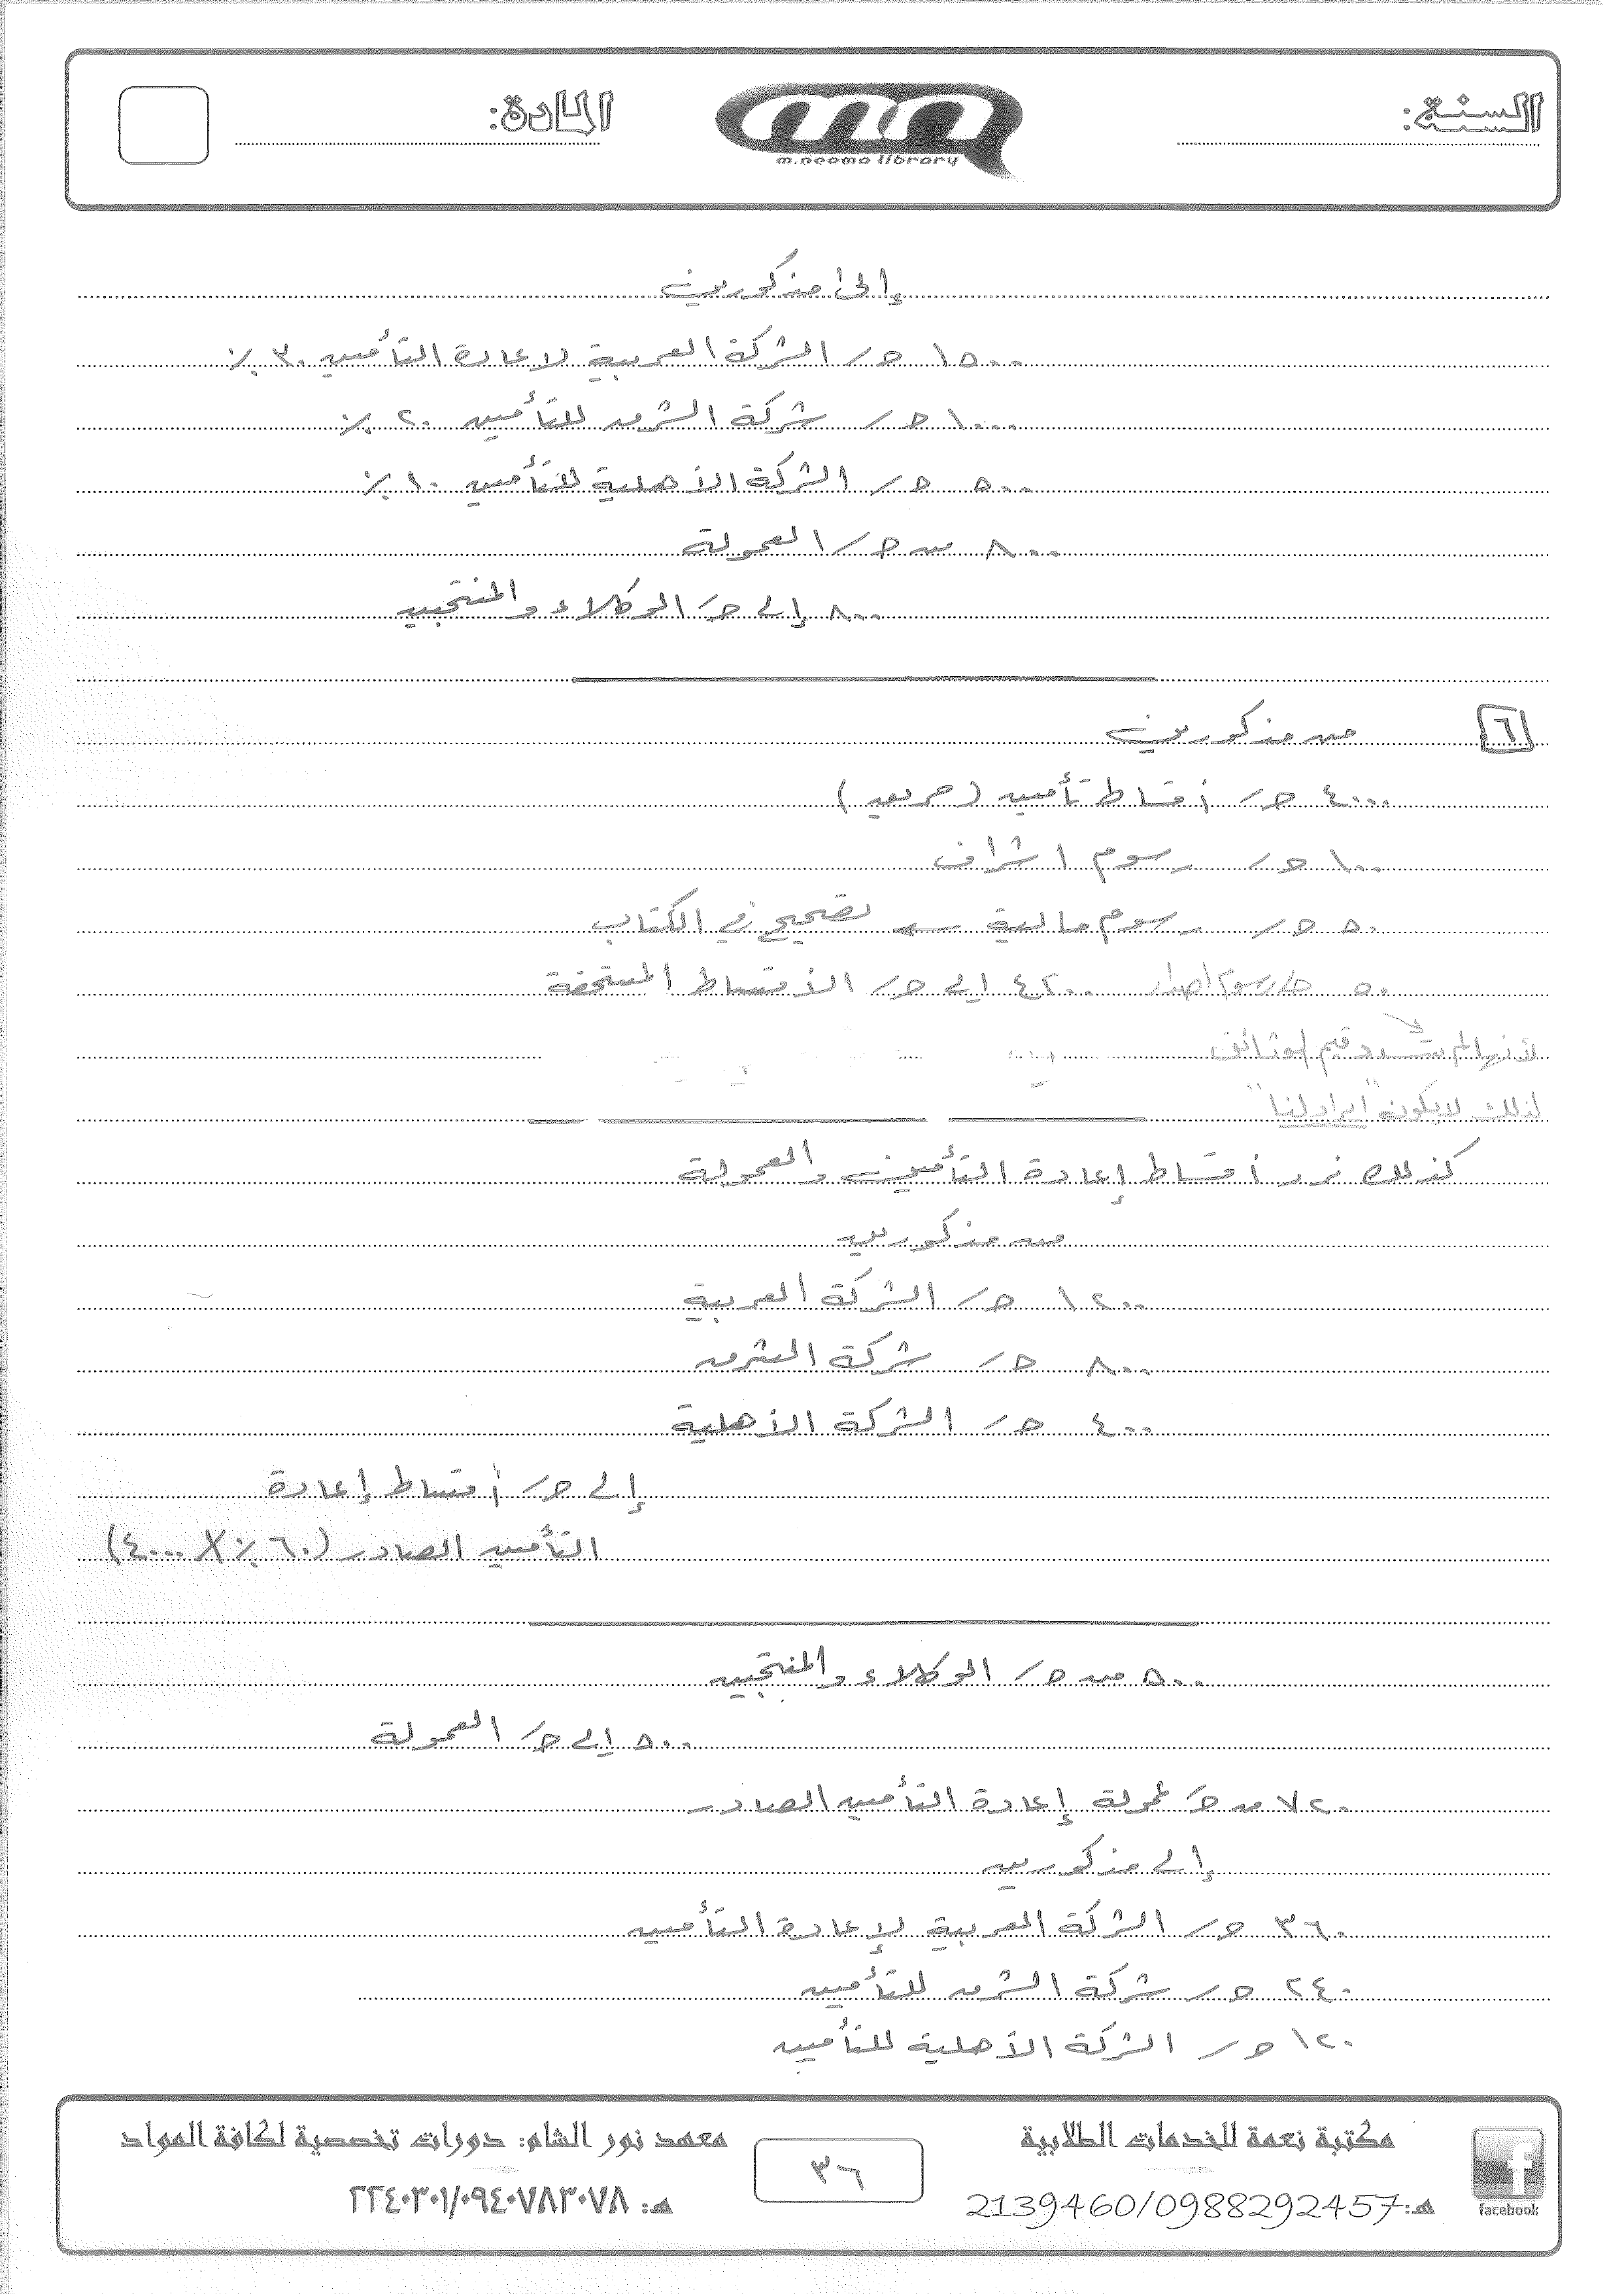 السنة:
m.neoma library
المادة:
إلى مذكورين
١٥٠٠ حـ/ الشركة العربية لاعادة التأمين ٣٠٪
١٠٠٠ حـ/ شركة الشرق للتأمين ٢٠٪
٥٠٠ حـ/ الشركة الأهلية للتأمين ١٠٪
٨٠٠ من حـ/ العمولة
٨٠٠ إلى حـ/ الوكلاء والمنتجين
٦ من مذكورين
٤٠٠٠ حـ/ أقساط تأمين (حريق)
١٠٠ حـ/ رسوم اشراف
٥٠ حـ/ رسوم مالية ← تصحيح في الكتاب
٥٠ حـ/ رسوم اصدار ٤٢٠٠ إلى حـ/ الأقساط المستحقة
لأنها لم تسدد قيم الوثائق
لذلك لا يكون "ايراد لنا"
كذلك نرد أقساط إعادة التأمين والعمولة
من مذكورين
١٢٠٠ حـ/ الشركة العربية
٨٠٠ حـ/ شركة الشرق
٤٠٠ حـ/ الشركة الأهلية
إلى حـ/ أقساط إعادة
التأمين الصادر (٦٠٪ X ٤٠٠٠)
٥٠٠ من حـ/ الوكلاء والمنتجين
٥٠٠ إلى حـ/ العمولة
٧٢٠ من حـ/ عمولة إعادة التأمين الصادر
إلى مذكورين
٣٦٠ حـ/ الشركة العربية لإعادة التأمين
٢٤٠ حـ/ شركة الشرق للتأمين
١٢٠ حـ/ الشركة الأهلية للتأمين
facebook
مكتبة نعمة للخدمات الطلابية
هـ: 2139460/0988292457
٣٦
معهد نور الشام: دورات تخصصية لكافة المواد
هـ: ٢٢٤٠٣٠١/٠٩٤٠٧٨٣٠٧٨